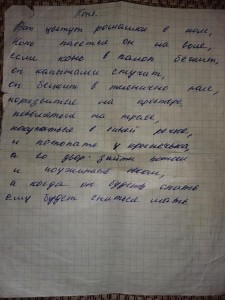 Конь.
Вот цветут ромашки в поле,
конь пасется он на воле,
если конь в галоп бежит,
он копытами стучит,
он бежит в пшенично поле,
порезвиться на просторе,
поваляться на траве,
искупаться в синей речке,
и поскакать у крылечка,
а во двор зайти потом
и поужинать овсом,
а когда он будеть спать
ему будет сниться мать